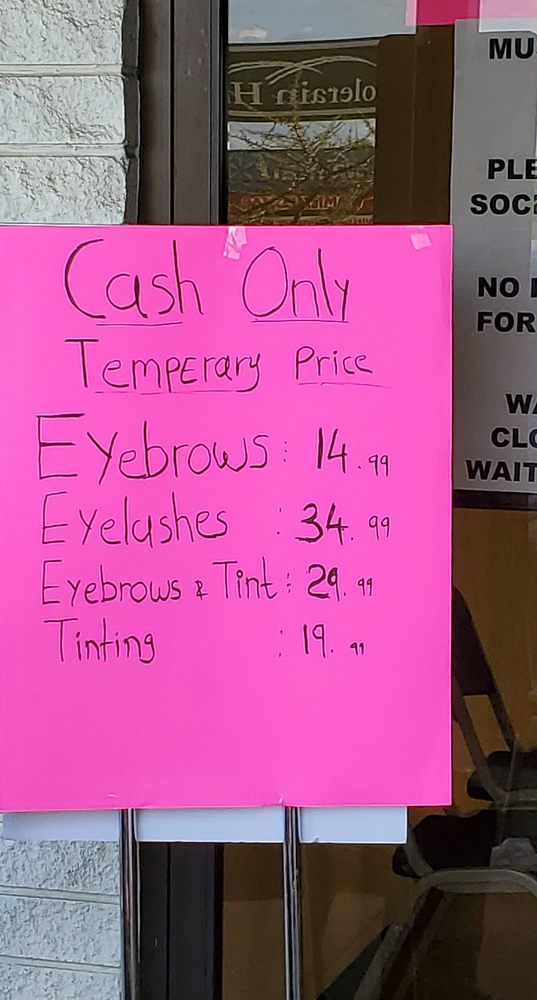 Cash Only
Temperary Price
Eyebrows: 14.99
Eyelashes : 34.99
Eyebrows & Tint: 29.99
Tinting : 19.99
olerain H
MU
PLE
SOC
NO
FOR
WA
CLO
WAIT